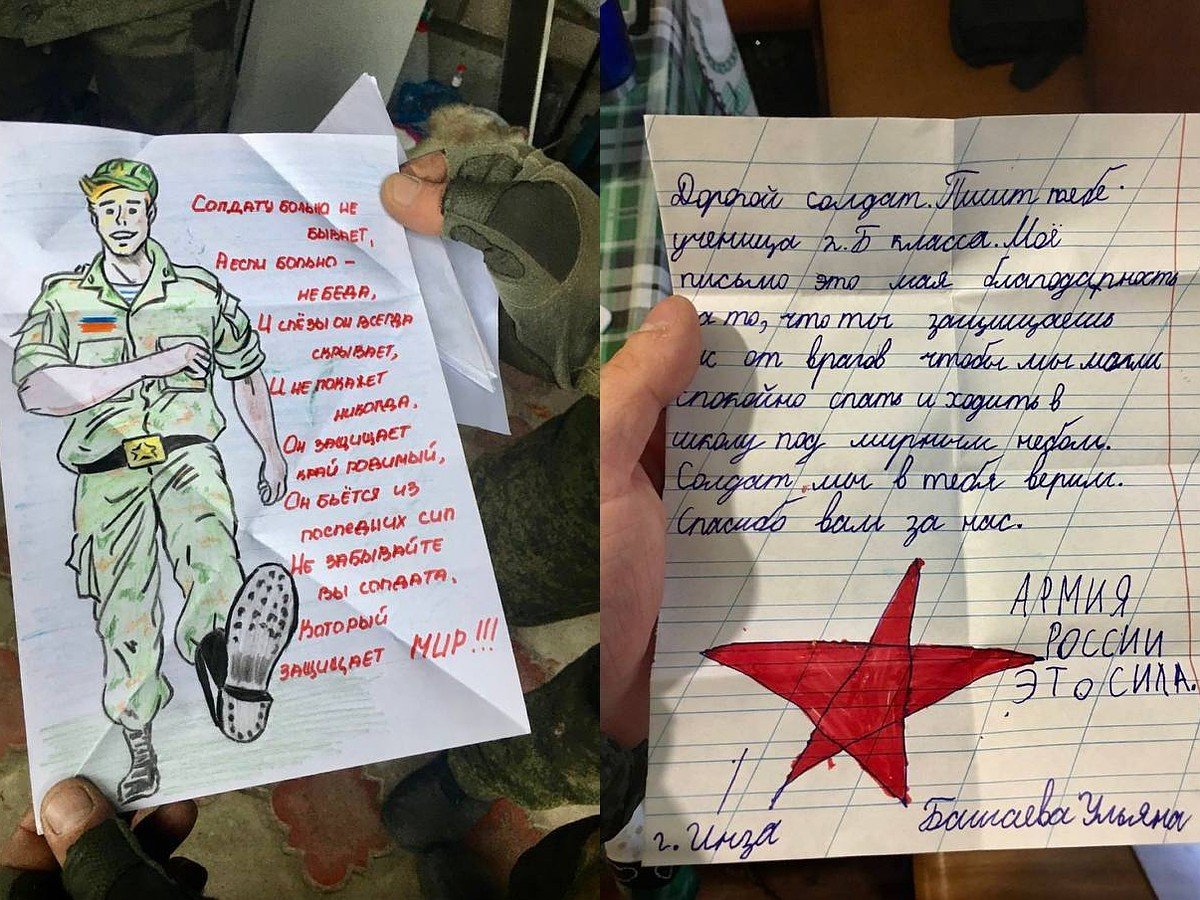 Солдату больно не
бывает,
А если больно –
не беда,
И слёзы он всегда
скрывает,
И не покажет
никогда.
Он защищает
край родимый,
Он бьётся из
последних сил
Не забывайте
вы солдата,
Который
защищает МИР!!!
Дорогой солдат. Пишит тебе
ученица 2.Б класса. Моё
письмо это мая благодарность
за то, что ты защищаешь
от врагов чтобы мы могли
спокойно спать и ходить в
школу под мирным небом.
Солдат мы в тебя верим.
Спасибо вам за нас.
АРМИЯ
РОССИИ
ЭТО СИЛА.
г. Инза
Ульяна